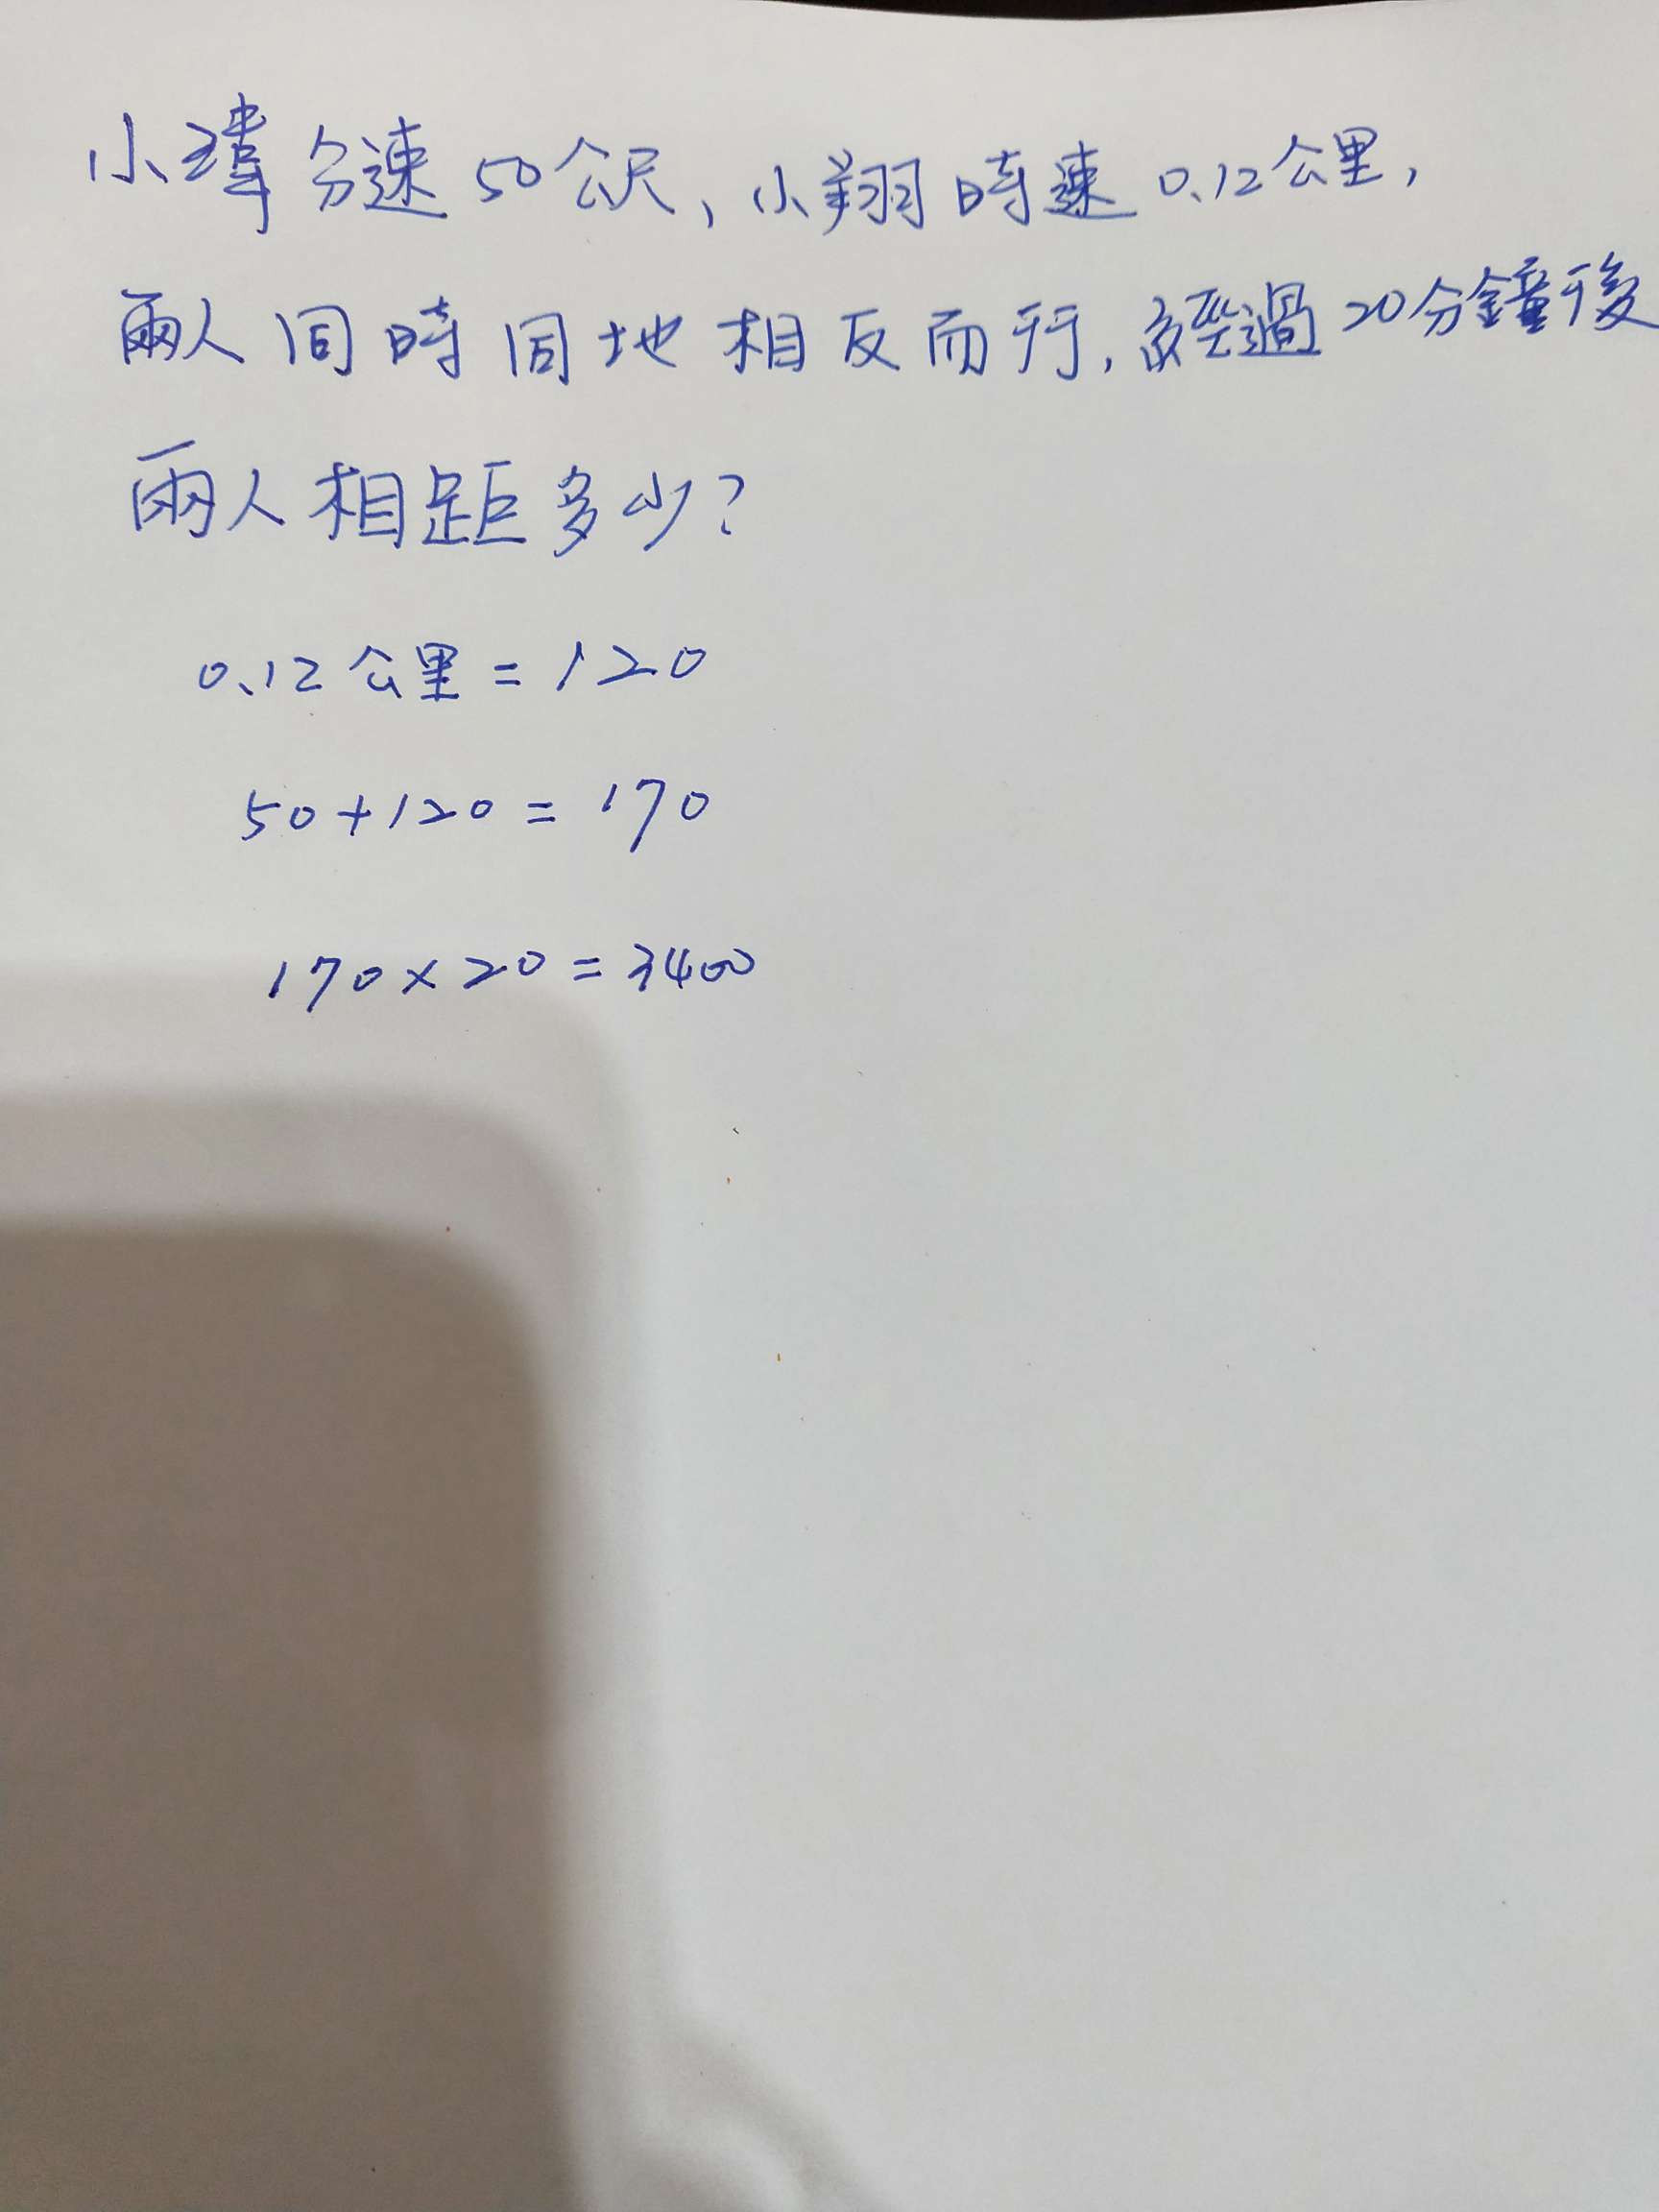 小瑋分速50公尺,小翔時速0.12公里,
兩人同時同地相反而行,經過20分鐘後
兩人相距多少?
0.12公里=120
50+120=170
170×20=3400